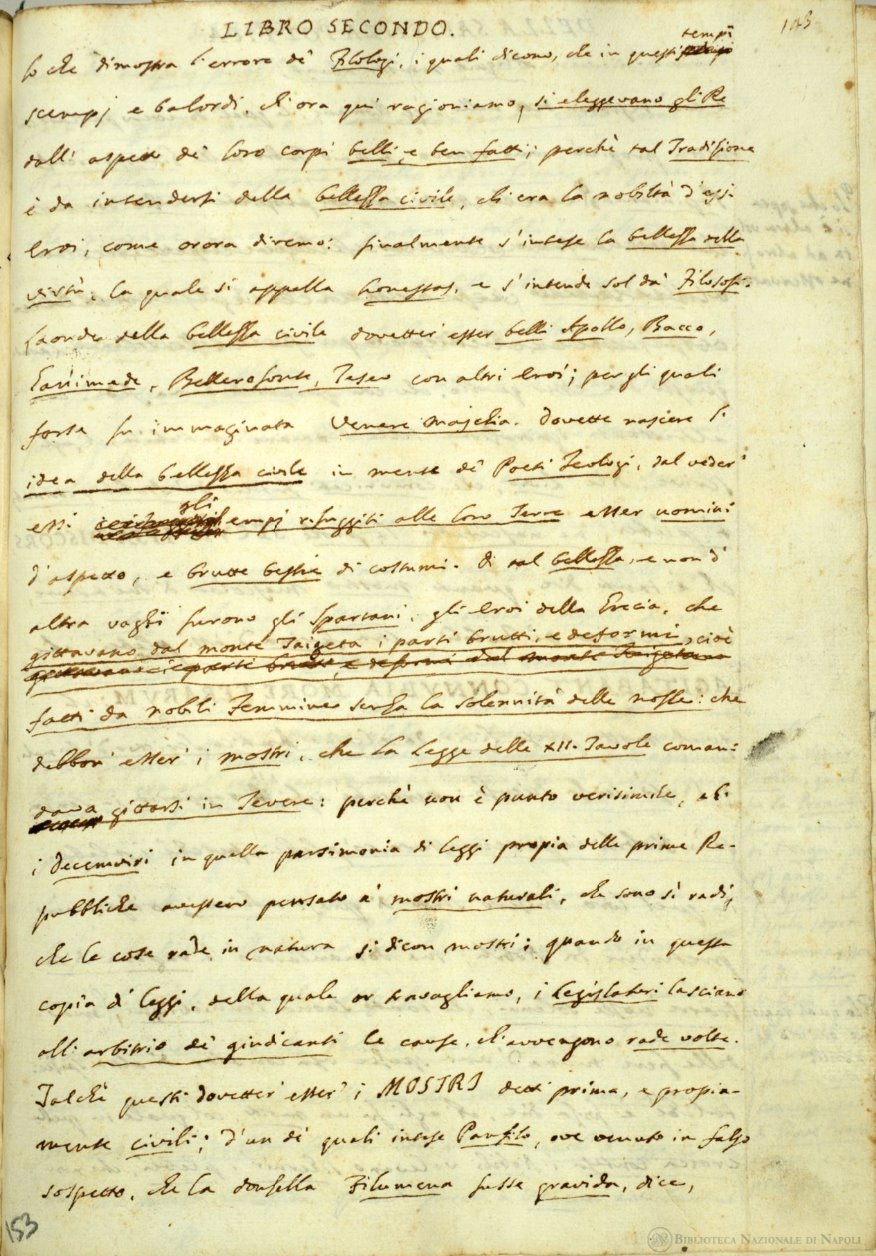 LIBRO SECONDO.
143
tempi
lo che dimostra l'errore de' Filologi, i quali dicono, che in questi
scempj e balordi, di ora qui ragioniamo, si eleggevano gli Re
dall' aspetto de' loro corpi belli, e ben fatti; perchè tal Tradizione
è da intendersi della bellezza civile, ch'era la nobiltà d'essi
Eroi, come orora diremo: finalmente s'intese la bellezza della
virtù, la quale si appella honestas, e s'intende sol da' Filosofi.
Laonde della bellezza civile dovetter' esser belli Apollo, Bacco,
Ganimede, Bellerofonte, Teseo con altri Eroi; per gli quali
forse fu immaginata Venere maschia. Dovette nascere l'
idea della bellezza civile in mente de' Poeti Teologi, dal veder'
gli
essi empj rifuggiti alle loro Terre esser uomini
d'aspetto, e brutte bestie di costumi. Di tal bellezza, e non d'
altra vaghi furono gli Spartani, gli Eroi della Grecia, che
gittavano dal monte Taigeta i parti brutti, e deformi, cioè
fatti da nobili Femmine senza la solennità delle nozze: che
debbon' esser' i mostri, che la Legge delle XII. Tavole coman-
dava gittarsi in Tevere: perchè non è punto verisimile, ch'
i Decemviri in quella parsimonia di leggi propia delle prime Re-
pubbliche avessero pensato a' mostri naturali, che sono sì radi,
che le cose rade in natura si dicon mostri; quando in questa
copia di leggi, della quale or travagliamo, i Legislatori lasciano
all' arbitrio de' giudicanti le cause, ch'avvengono rade volte.
Talchè questi dovetter' esser' i MOSTRI detti prima, e propia-
mente civili; d'un de' quali intese Panfilo, ove venuto in falso
sospetto, che la donzella Filumena fusse gravida, dice,
153
BIBLIOTECA NAZIONALE DI NAPOLI